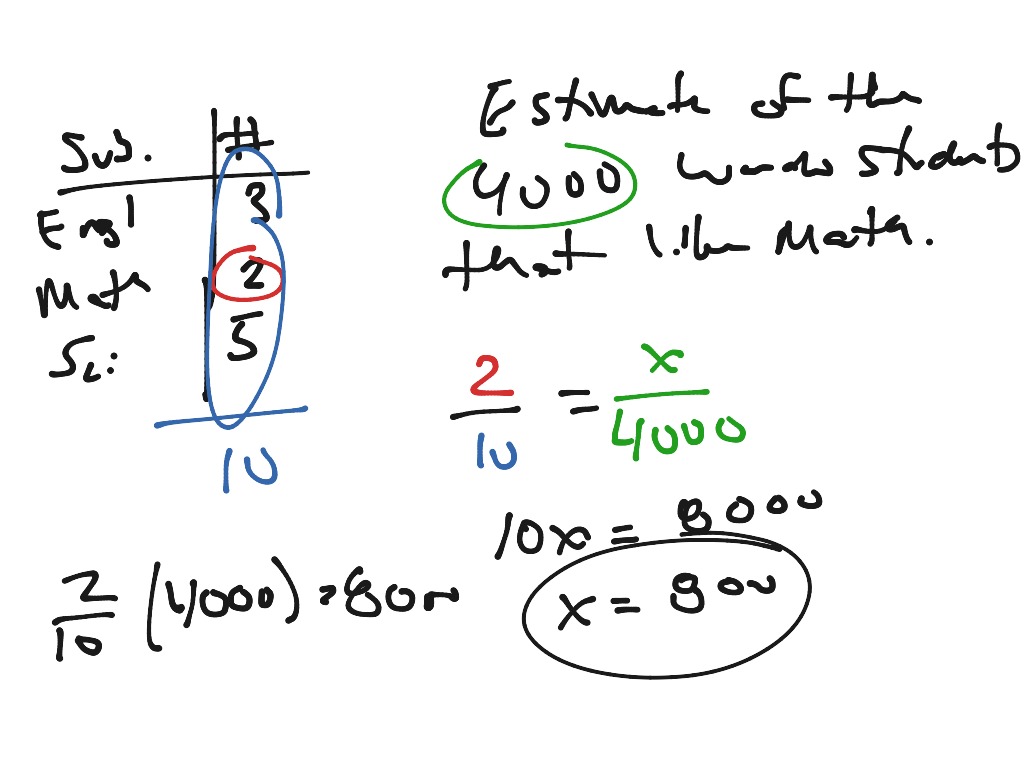 Sub. #
Engl 3
Math 2
Sc. 5
10
Estimate of the
4000 students
that like Math.
2/10 = x/4000
10x = 8000
x = 800
2/10 (4000) = 800